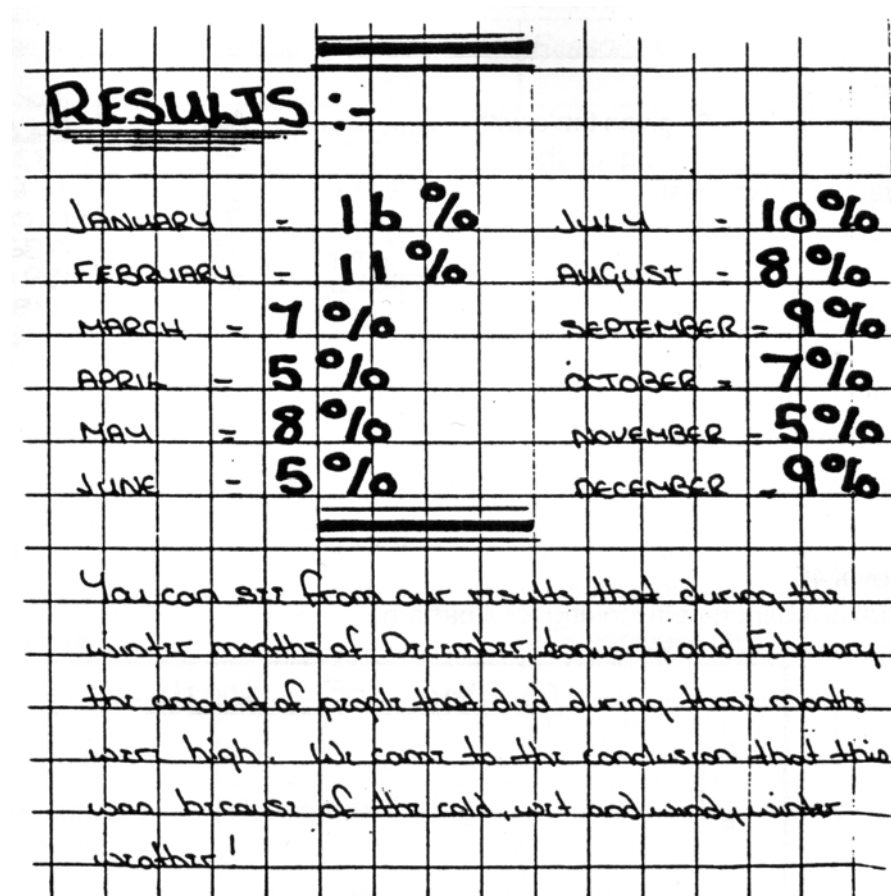 RESULTS :-
JANUARY = 16 % JULY = 10%
FEBRUARY = 11 % AUGUST = 8 %
MARCH = 7 % SEPTEMBER = 9%
APRIL = 5 % OCTOBER = 7%
MAY = 8 % NOVEMBER = 5%
JUNE = 5 % DECEMBER = 9%
You can see from our results that during the
winter months of December, January and February
the amount of people that died during those months
were high. We came to the conclusion that this
was because of the cold, wet and windy winter
weather!